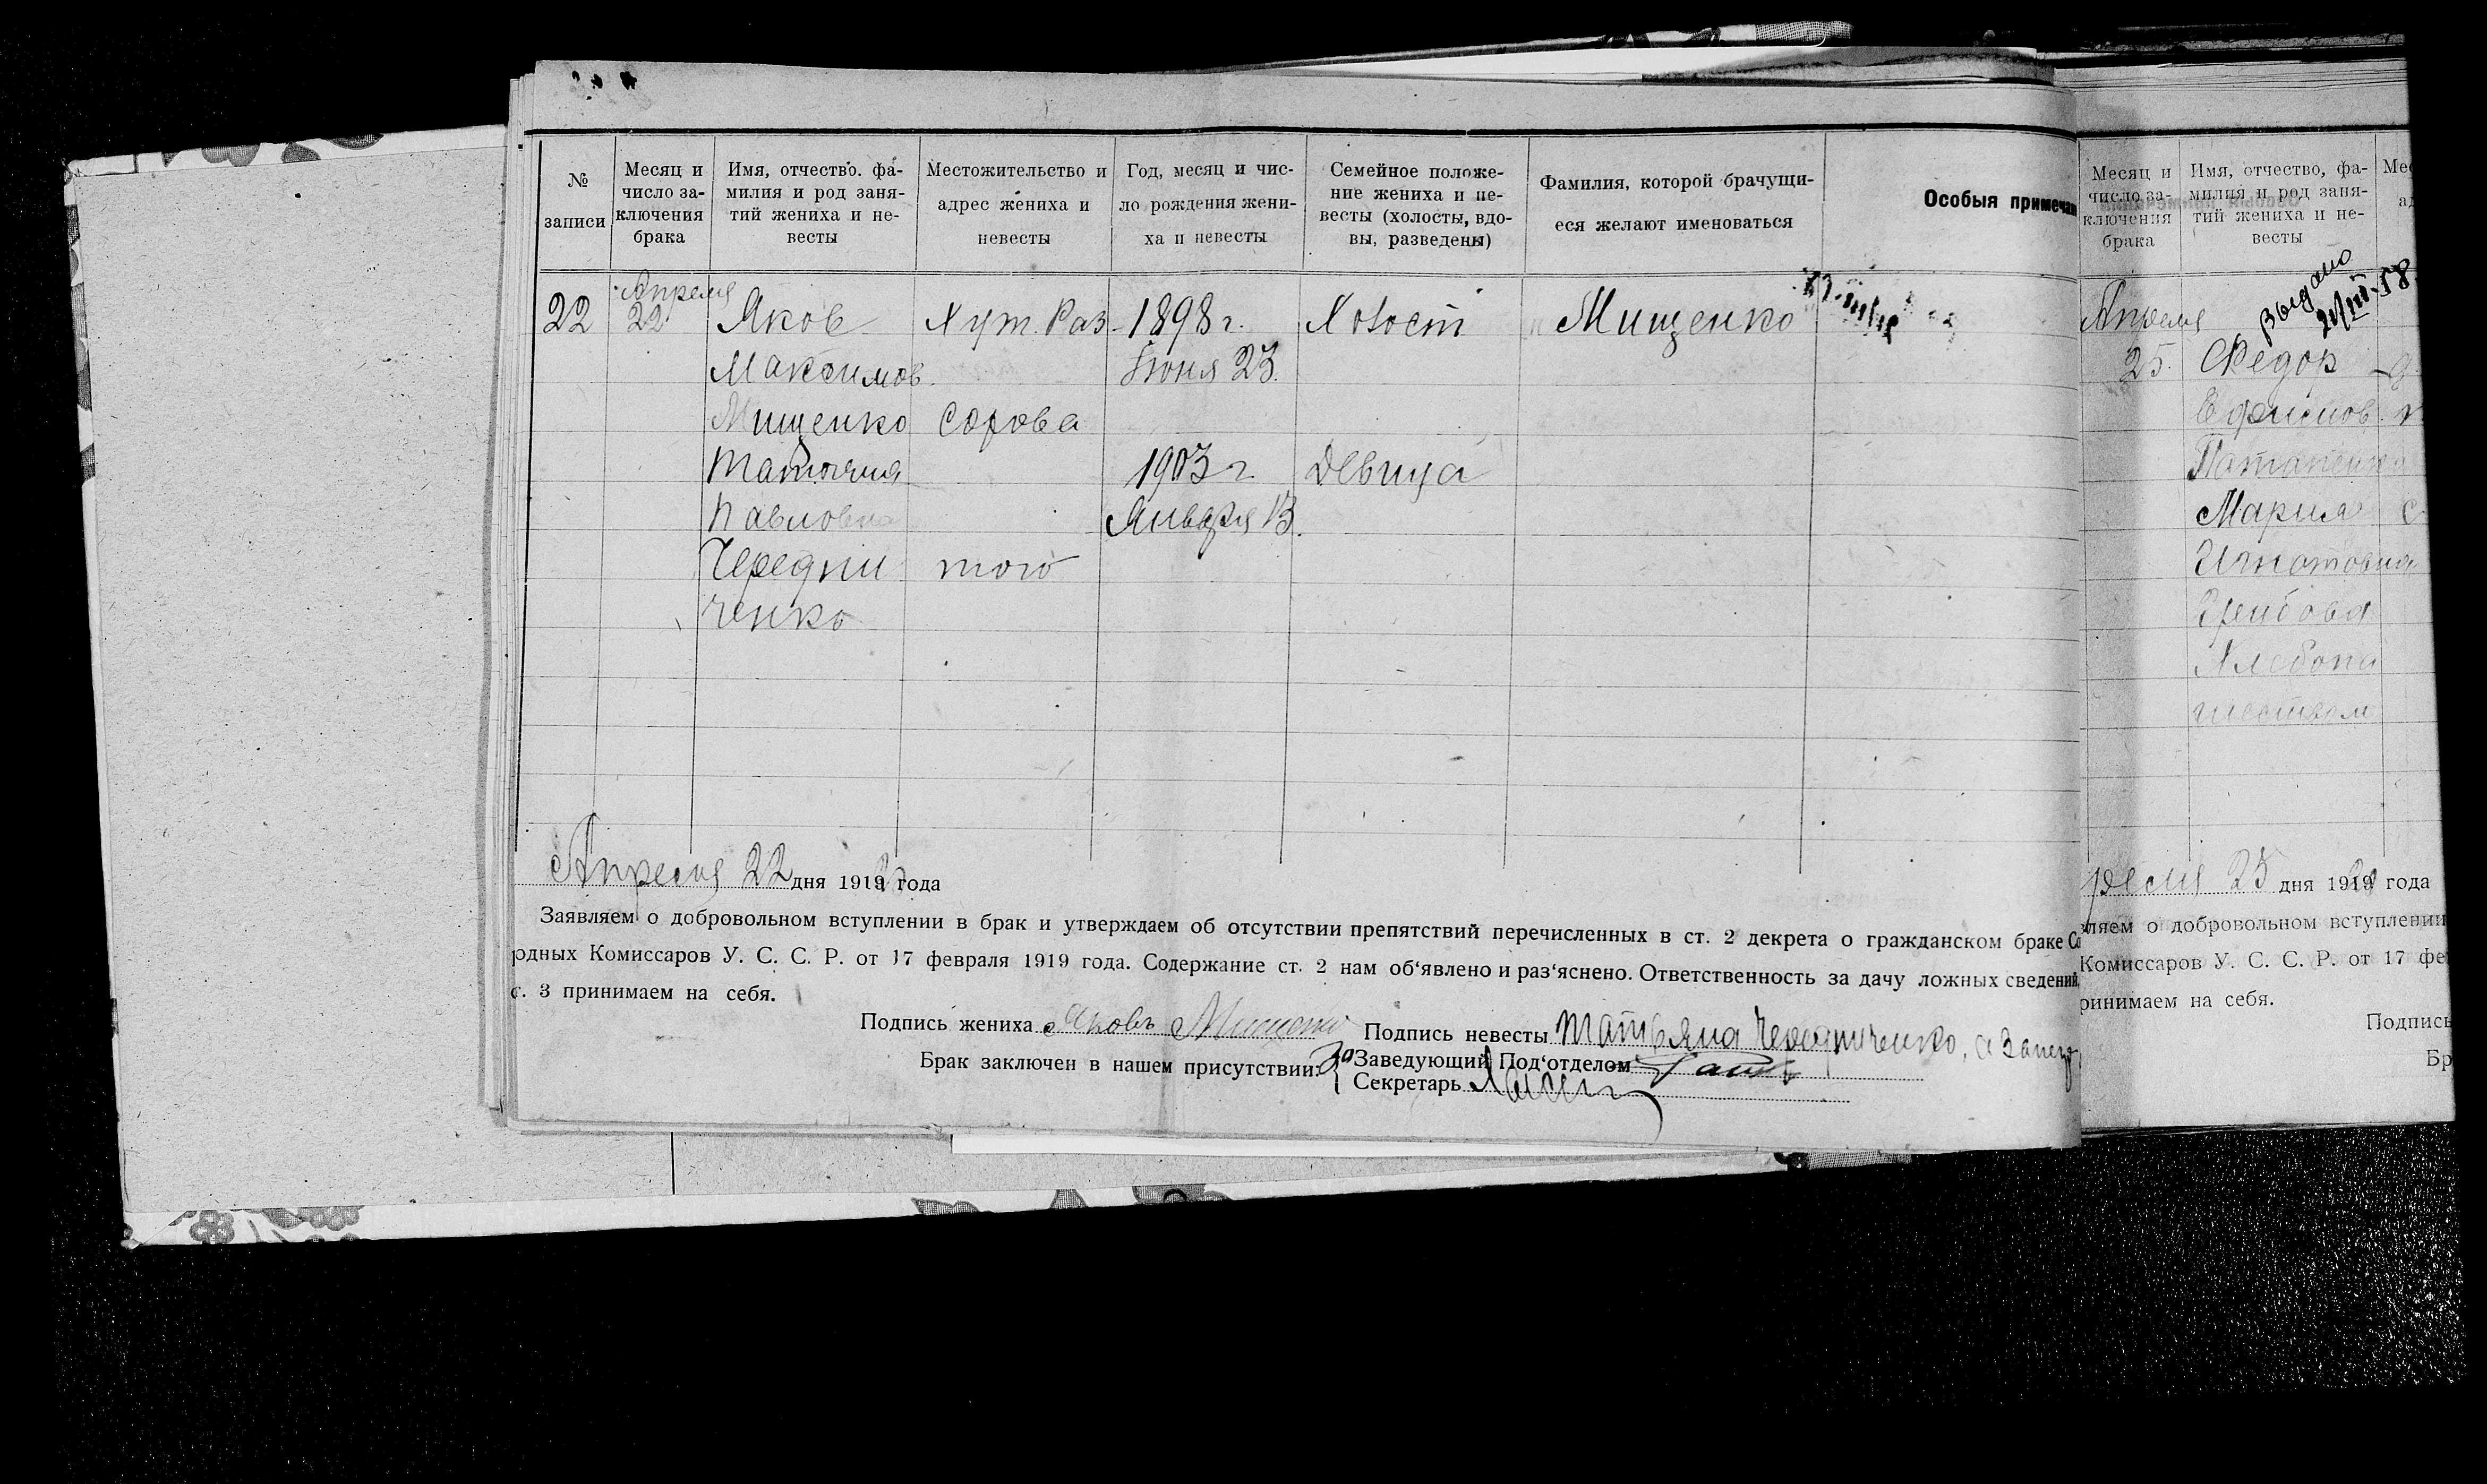 № записи
Месяц и число заключения брака
Имя, отчество. фа-
милия и род заня-
тий жениха и не-
весты
Местожительство и
адрес жениха и
невесты
Год, месяц и чис-
ло рождения жени-
ха и невесты
Семейное положе-
ние жениха и не-
весты (холосты, вдо-
вы, разведены)
Фамилия, которой брачущи-
еся желают именоваться
Особыя примечан
Апреля
22 22 Яков Хут. Раз 1898 г. Холост Мищенко
Максимов. Июня 23.
Мищенко сорова
Татьяна 1903 г. Девица
Павловна Января 13.
Ередни того
ченко
Апреля 22 дня 1919 года
Заявляем о добровольном вступлении в брак и утверждаем об отсутствии препятствий перечисленных в ст. 2 декрета о гражданском браке Со
родных Комиссаров У. С. С. Р. от 17 февраля 1919 года. Содержание ст. 2 нам об‘явлено и раз‘яснено. Ответственность за дачу ложных сведений
ст. 3 принимаем на себя.
Подпись жениха Яковъ Мищенко Подпись невесты Татьяна Чередниченко, а за нее
Брак заключен в нашем присутствии: За Заведующий Под‘отделом
Секретарь
Месяц и
число за-
ключения
брака
Имя, отчество, фа-
милия и род заня-
тий жениха и не-
весты
Мес
ад
Выдано
21/III-58.
Апреля
25. Федор
Ефимов.
Потапенко
Мария с
Игнатовна
Грибова
Хлебопа
шеством
реля 25 дня 1919 года
вляем о добровольном вступлении
Комиссаров У. С. С. Р. от 17 фе
ринимаем на себя.
Подпись
Бр